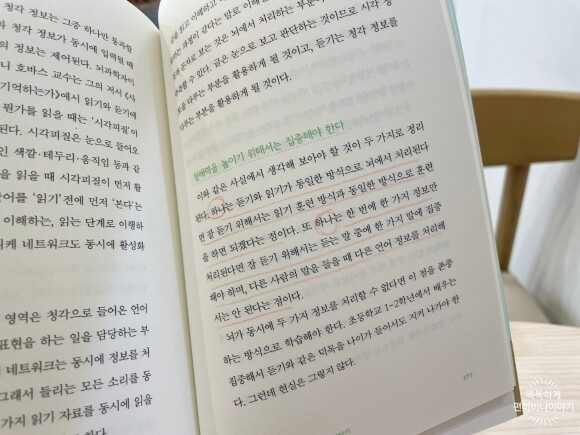 청각 정보는 그중 하나만 통과할
각 정보가 동시에 입력될 때
의 정보는 제어된다. 뇌과학자이
니 호바스 교수는 그의 저서 《사
기억하는가》에서 읽기와 듣기에
뭔가를 읽을 때는 '시각피질'이
된다. 시각피질은 눈으로 들어오
인 색깔·테두리·움직임 등과 같
을 읽을 때 시각피질이 먼저 활
단어를 '읽기' 전에 먼저 '본다'는
이해하는, 읽는 단계로 이행하
니케 네트워크도 동시에 활성화
영역은 청각으로 들어온 언어
표현을 하는 일을 담당하는 부
네트워크는 동시에 정보를 처
그래서 들리는 모든 소리를 동
가지 읽기 자료를 동시에 읽을
하다.
글을 읽고 이해하고
하는 과정이 같다는 말로 이해
것과 문자로 보는 것은 뇌에서 처리하는 부분
측할 수 있다. 글은 눈으로 보고 판단하는 것이므로 시각 정
보를 다루는 부분을 활용하게 될 것이고, 듣기는 청각 정보를
다루는 부분을 활용하게 될 것이다.
청해력을 높이기 위해서는 집중해야 한다
이와 같은 사실에서 생각해 보아야 할 것이 두 가지로 정리
된다. 하나는 듣기와 읽기가 동일한 방식으로 뇌에서 처리된다
면 잘 듣기 위해서는 읽기 훈련 방식과 동일한 방식으로 훈련
을 하면 되겠다는 점이다. 또 하나는 한 번에 한 가지 정보만
처리된다면 잘 듣기 위해서는 듣는 말 중에 한 가지 말에 집중
해야 하며, 다른 사람의 말을 들을 때 다른 언어 정보를 처리해
서는 안 된다는 점이다.
뇌가 동시에 두 가지 정보를 처리할 수 없다면 이 점을 존중
하는 방식으로 학습해야 한다. 초등학교 1~2학년에서 배우는
집중해서 듣기와 같은 덕목을 나이가 들어서도 지켜 나가야 한
다. 그런데 현실은 그렇지 않다.
똑똑하게
편하비니이야기